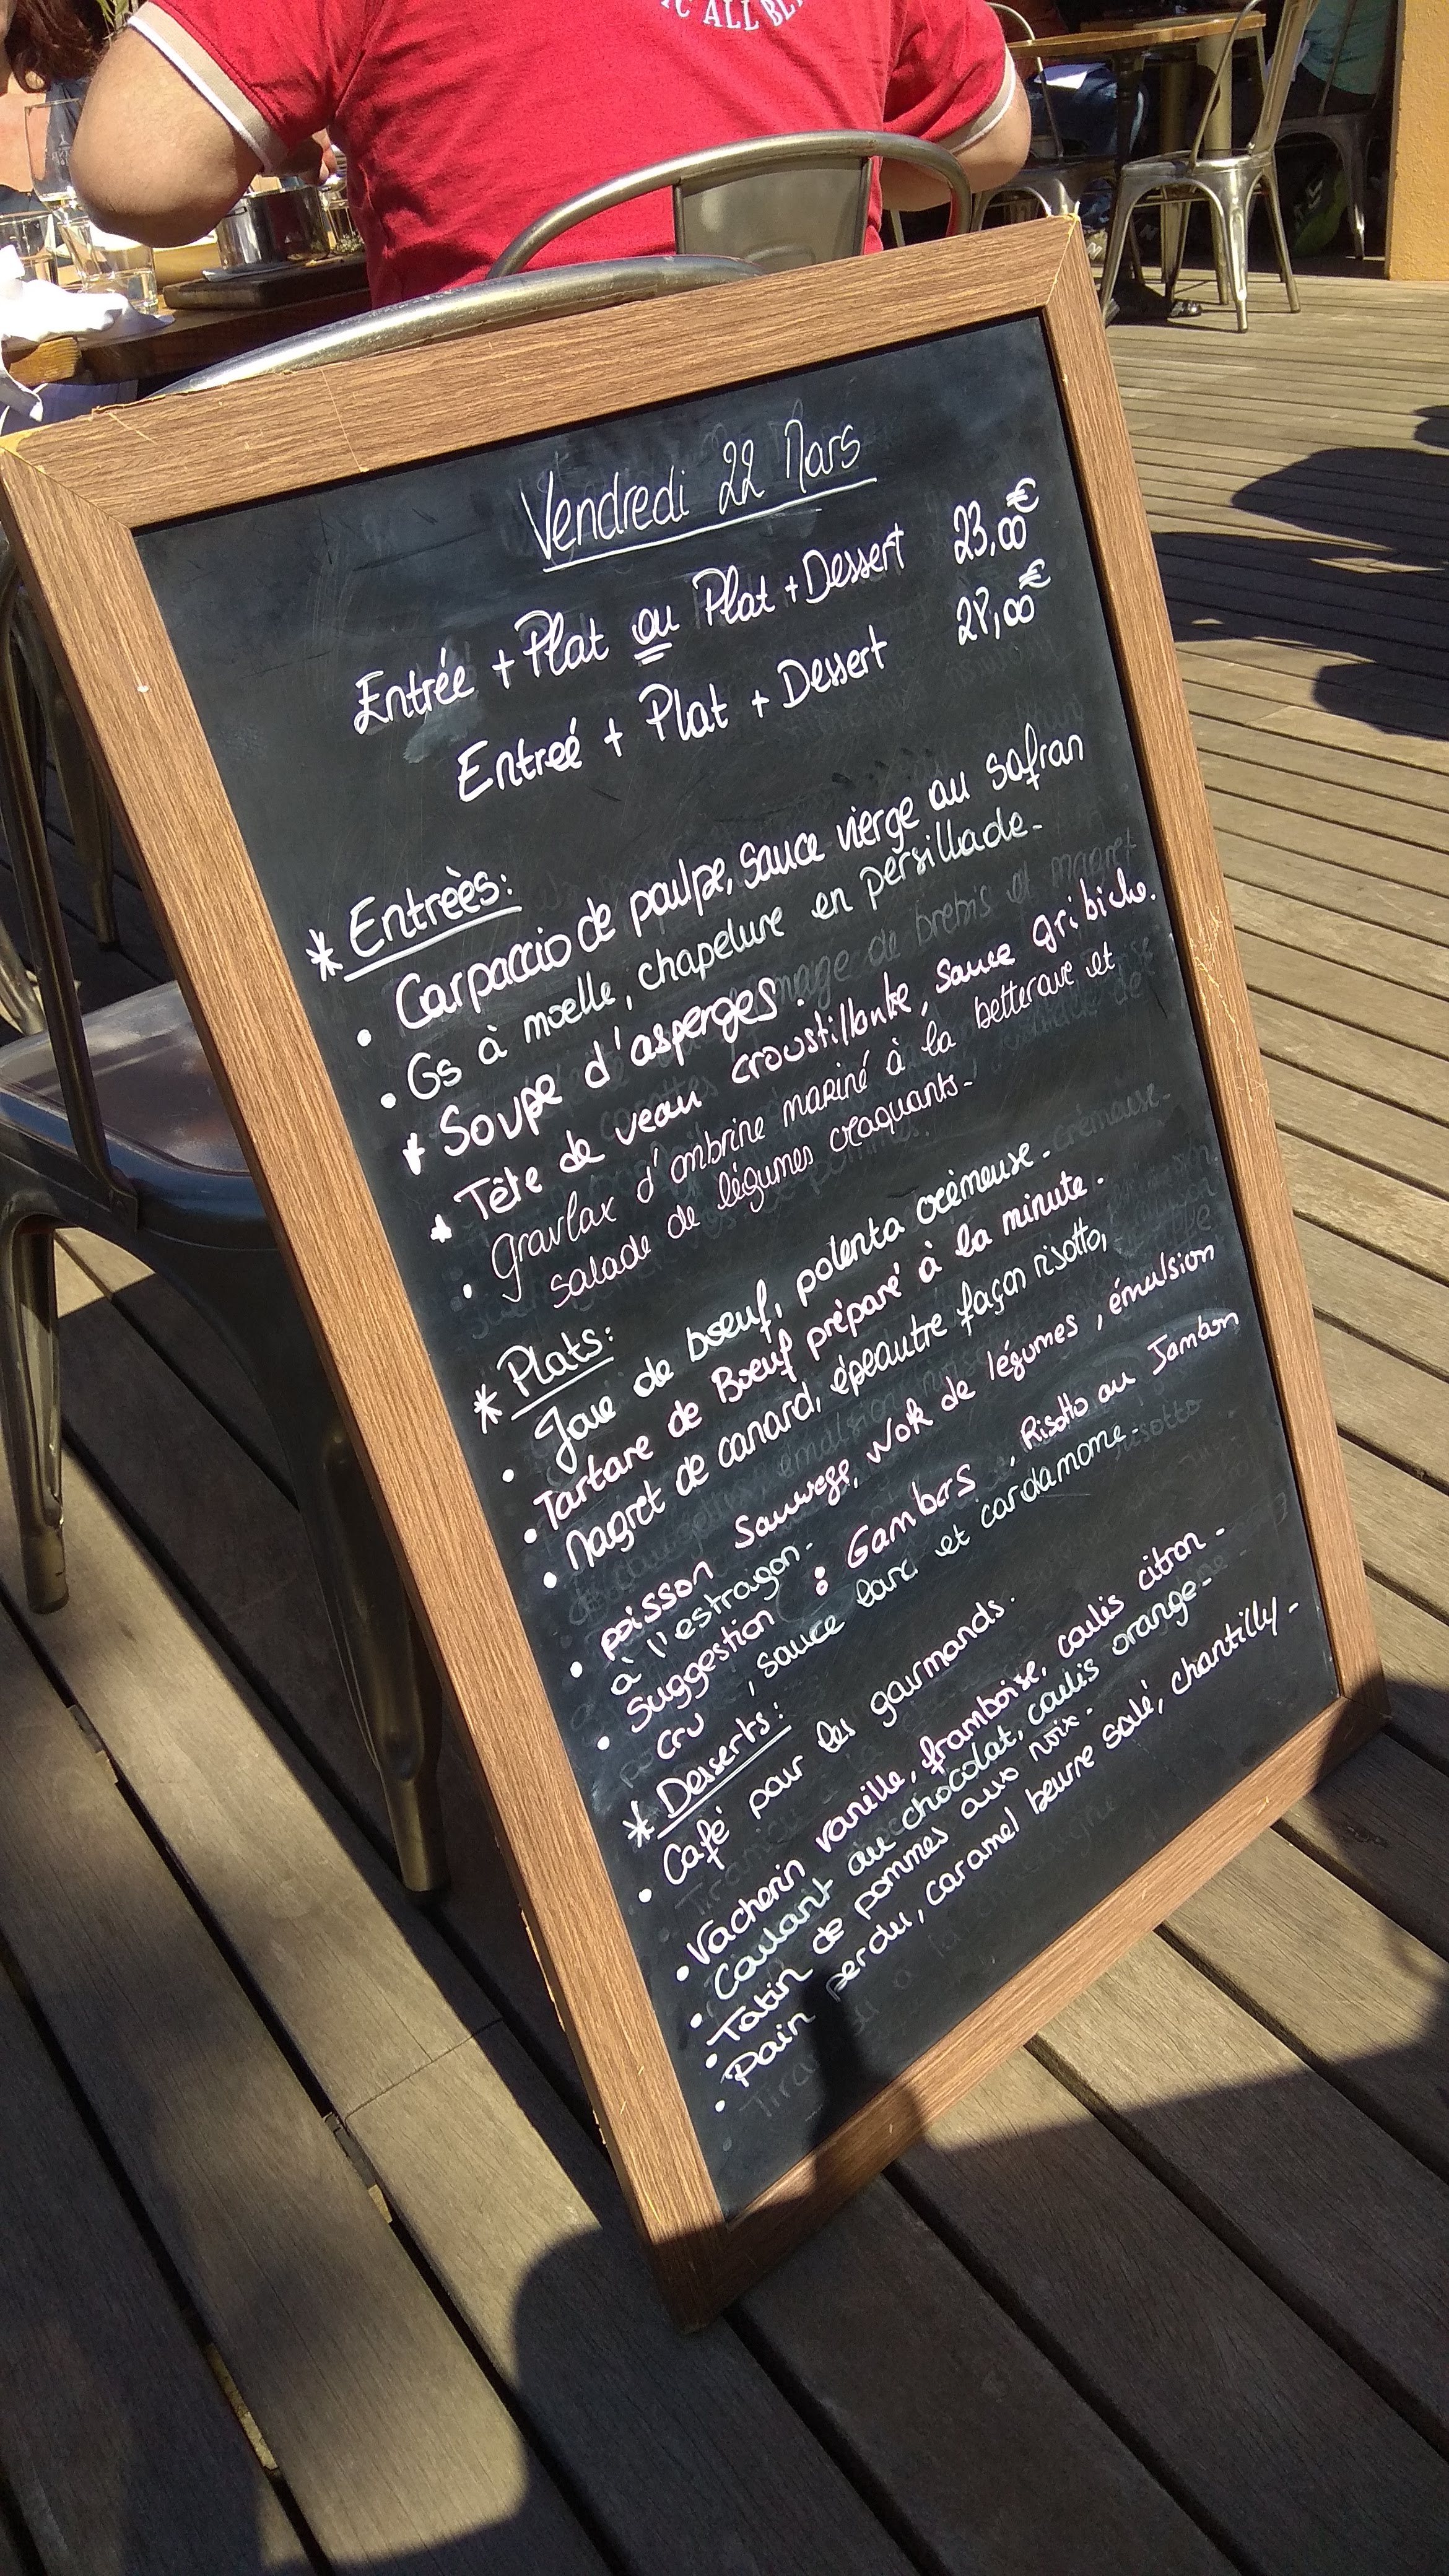 Vendredi 22 Mars
Entrée + Plat ou Plat + Dessert 23,00€
Entreé + Plat + Dessert 27,00€
* Entrèès:
• Carpaccio de poulpe, sauce vierge au safran
• Os à moelle, chapelure en persillade.
• Soupe d'asperges.
• Tête de veau croustillante, sauce gribiche.
• Gravlax d'ombrine mariné à la betterave et
salade de légumes craquants.
* Plats:
• Joue de boeuf, polenta crémeuse.
• Tartare de Boeuf préparé à la minute.
• Magret de canard, épeautre façon risotto,
• poisson Sauvage, wok de légumes, émulsion
à l'estragon.
• Suggestion : Gambas, Risotto au Jambon
cru, sauce lard et cardamome.
* Desserts:
• Café pour les gourmands.
• Vacherin vanille, framboise, coulis citron.
• Coulant au chocolat, coulis orange.
• Tatin de pommes aux noix.
• Pain perdu, caramel beurre salé, chantilly.